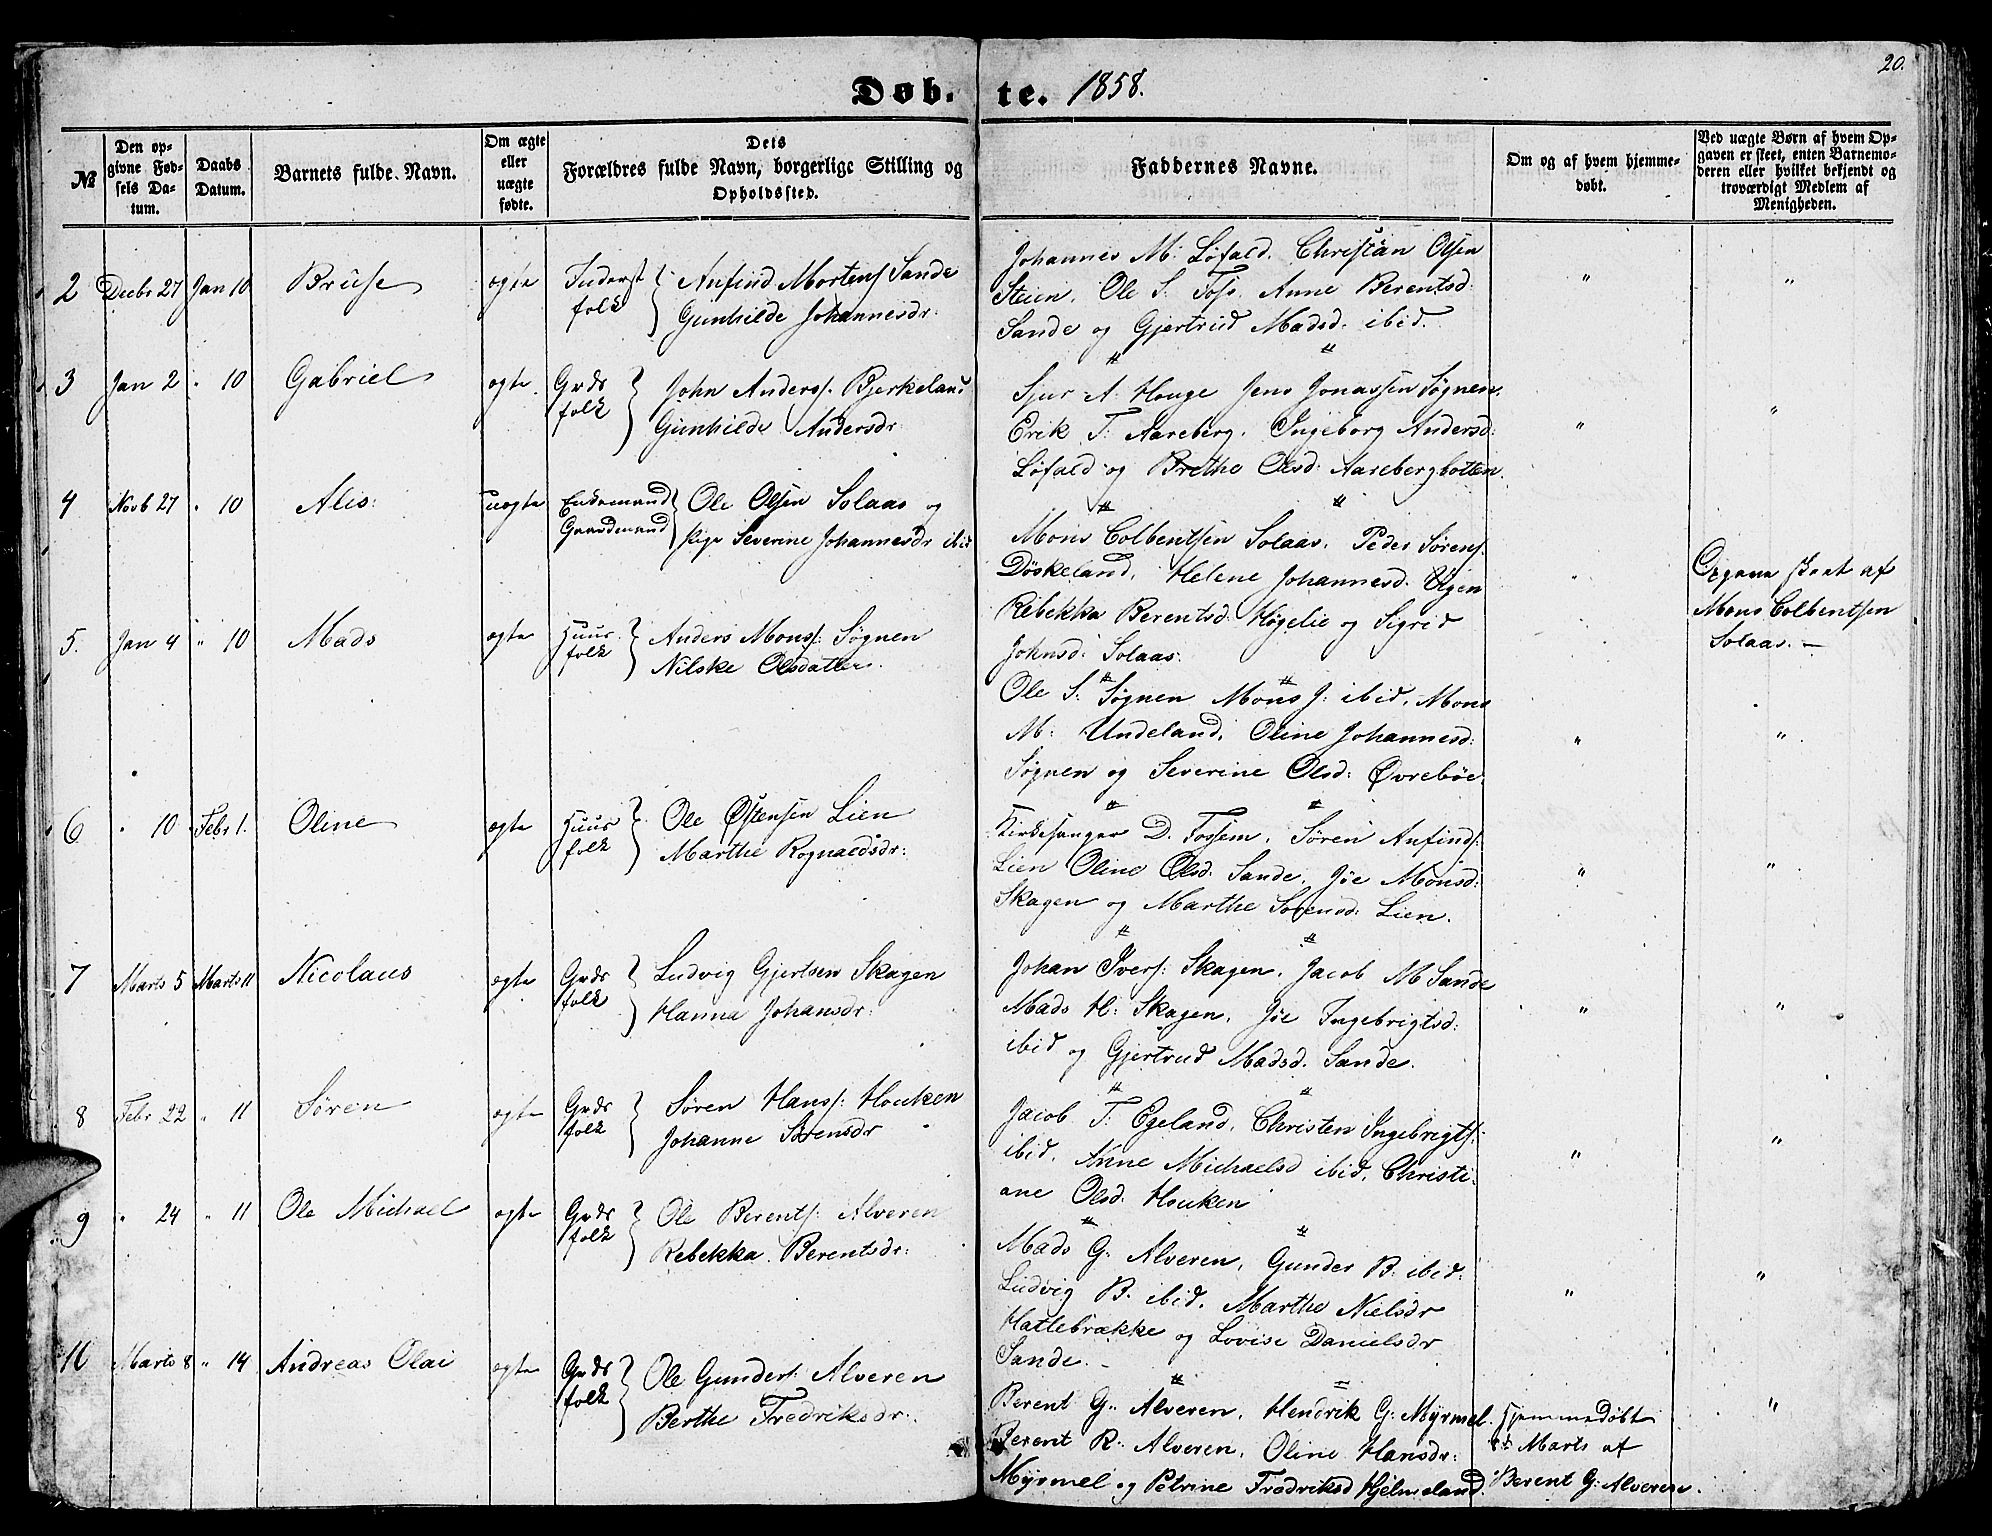 20.
Døb- te. 1858.
№
Den opgivne Fødsels Datum.
Daabs Datum.
Barnets fulde Navn.
Om ægte eller uægte fødte.
Dets Forældres fulde Navn, borgerlige Stilling og Opholdssted.
Faddernes Navne.
Om og af hvem hjemmedøbt.
Ved uægte Børn af hvem Opgaven er skeet, enten Barnemoderen eller hvilket bekjendt og troværdigt Medlem af Menigheden.
2 Decbr 27 Jan 10 Bruse ægte Inderst folk { Anfind Mortens: Sande
Gunhilde Johannesdr:
Johannes M: Løfald. Christian Olsen
Steien, Ole S: Foss. Anne Berentsd:
Sande og Gjertrud Madsd. ibid.
" "
3 Jan 2 " 10 Gabriel ægte. Grds folk } John Anderss. Bjerkeland
Gunhilde Andersdr:
Sjur A: Houge Jens Jonassen Søgnen,
Erik T: Aareberg, Ingeborg Andersd:
Løfald og Brethe Olsd: Aarebergbotten.
" "
4 Novb 27 " 10 Alis: uægte Enkemand Gaardmand { Ole Olsen Solaas og
Pige Severine Johannesdr ibid
Mons Colbentsen Solaas, Peder Sørens.
Døskeland, Helene Johannesd.
Rebekka Berentsd: Høgelie og Sigrid
Johnsd: Solaas.
" Opgava skeet af
Mons Colbentsen
Solaas. –
5. Jan 4 " 10 Mads ægte Huus folk { Anders Mons: Søgnen
Nilske Olsdatter.
Ole S: Søgnen Mons J: ibid, Mons
M: Undeland, Oline Johannesd:
Søgnen og Severine Olsd: Øvrebøe.
" "
6 " 10 Febr 1. Oline ægte Huus folk } Ole Østensen Lien
Marthe Rognaldsdr:
Kirkesanger D. Fossem, Søren Anfinds:
Lien Oline Olsd. Sande, Jøe Monsd:
Skagen og Marthe Sørensd: Lien.
" "
7 Marts 5 Marts 11 Nicolaus ægte Grds folk } Ludvig Gjertsen Skagen
Hanna Johansdr:
Johan Ivers: Skagen, Jacob M Sande
Mads H: Skagen, Jøe Ingebrigtsd:
ibid og Gjertrud Madsd. Sande.
" "
8 Febr 22 " 11 Søren ægte Grds folk } Søren Hanss: Houken
Johanne Sørensdr
Jacob T: Egeland, Christen Ingebrigts:
ibid, Anne Michaelsd ibid, Christi-
ane Olsd. Houken
" "
9 " 24 " 11 Ole Michael ægte Grds folk } Ole Berents: Alveren
Rebekka Berentsdr:
Mads G: Alveren, Gunder B. ibid.
Ludvig B. ibid, Marthe Nielsdr
Hatlebrække og Lovise Danielsdr
Sande. –
" "
10 Marts 8 " 14 Andreas Olai ægte Grds folk } Ole Gunders: Alveren
Berthe Fredriksdr:
Berent G: Alveren, Hendrik G: Myrmel.
Berent R: Alveren, Oline Hansdr:
Myrmel og Petrine Fredriksd Hjelmeland.
Hjemmedøbt
Marts af
Berent G: Alveren.
"